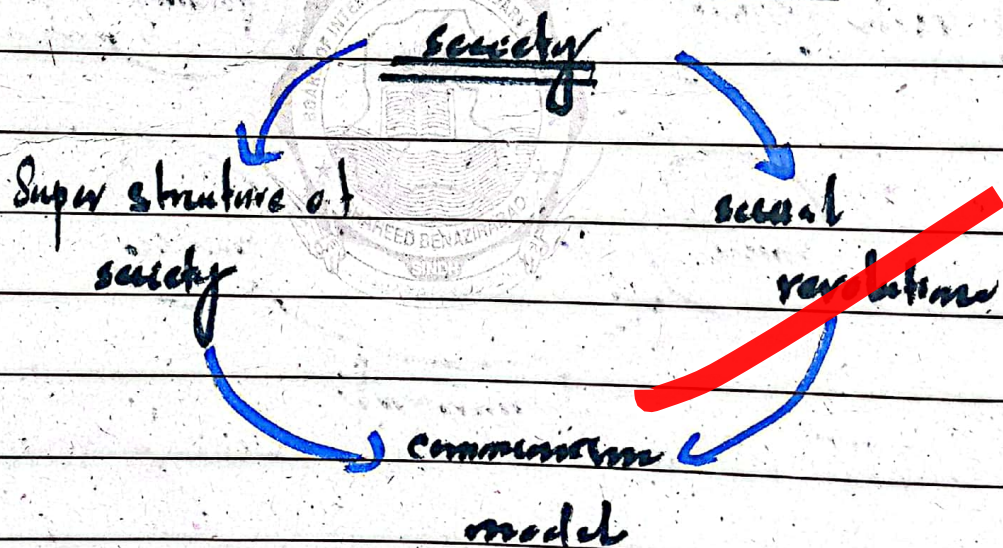 society
Super struture of
society
social
revolutions
communism
model
BENAZIRABAD